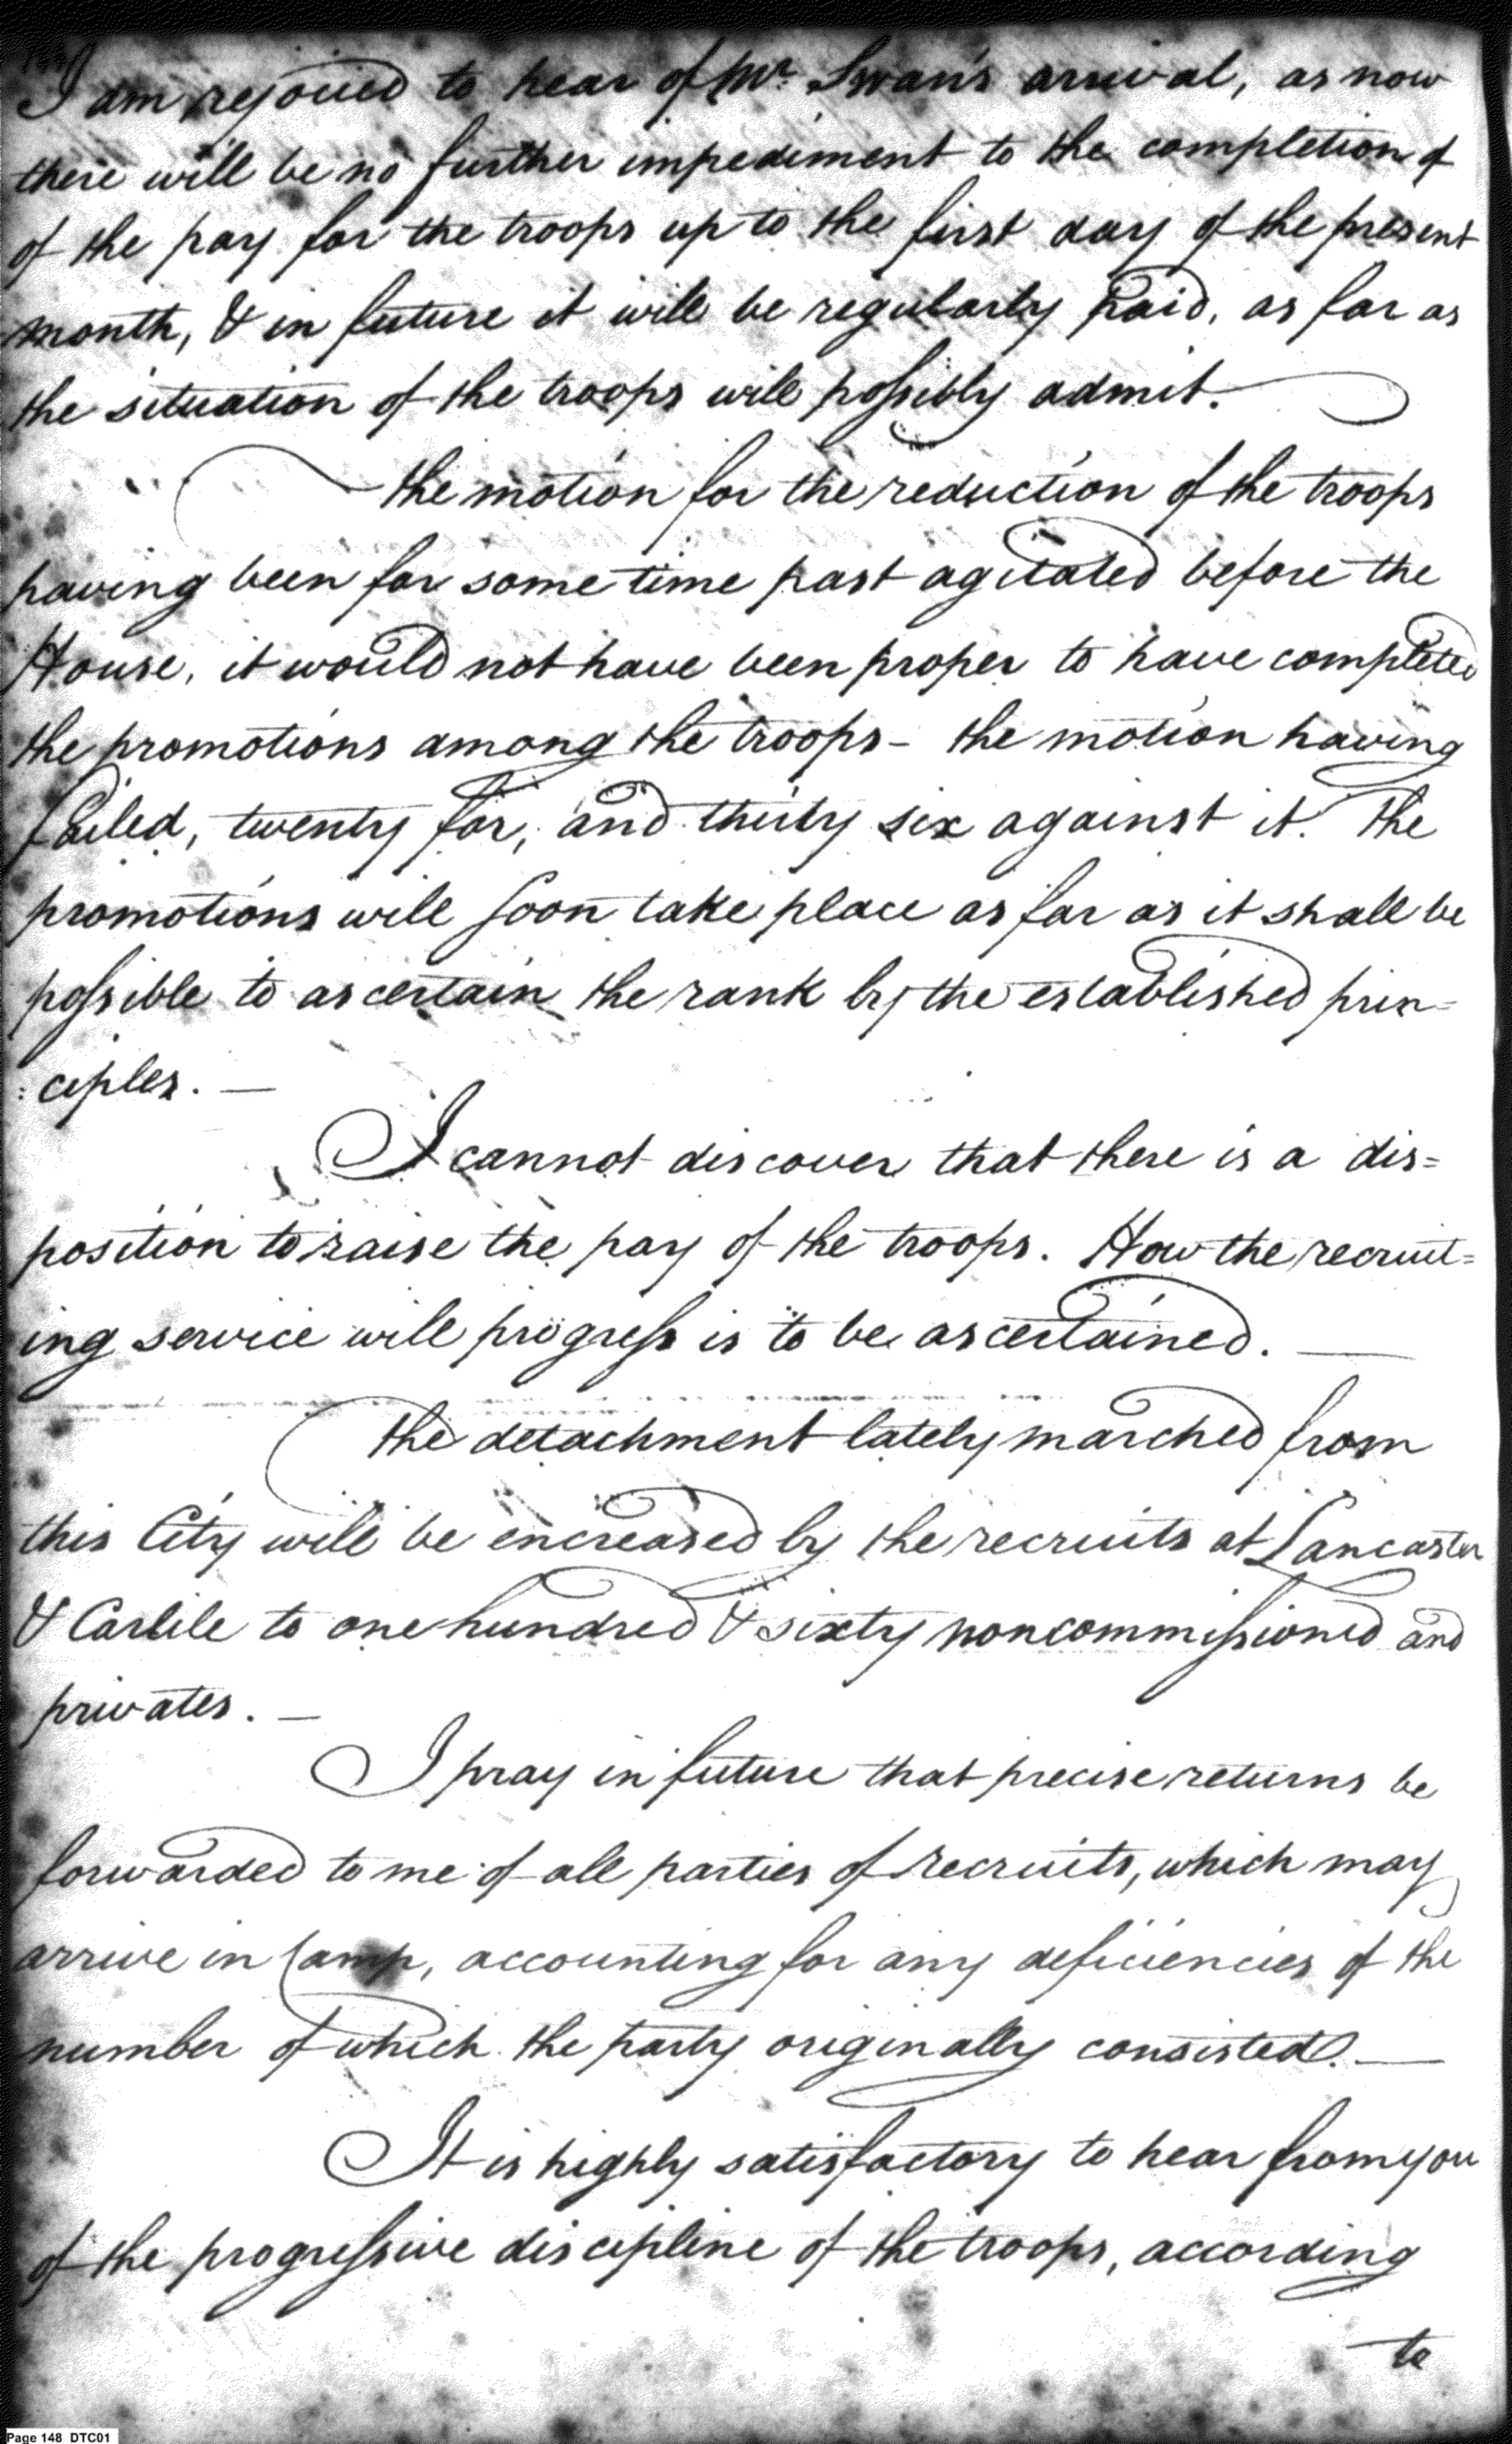 I am rejoiced to hear of Mr. Swan's arrival, as now
there will be no further impediment to the completion of
of the pay for the troops up to the first day of the present
month, & in future it will be regularly paid, as far as
the situation of the troops will possibly admit.
the motion for the reduction of the troops
having been for some time past agitated before the
House, it would not have been proper to have completed
the promotions among the troops – the motion having
failed, twenty for, and thirty six against it. The
promotions will soon take place as far as it shall be
possible to ascertain the rank by the established prin=
:ciples. —
I cannot discover that there is a dis=
position to raise the pay of the troops. How the recruit=
ing service will progress is to be ascertained. —
The detachment lately marched from
this City will be encreased by the recruits at Lancaster
& Carlile to one hundred & sixty noncommissioned and
privates. —
I pray in future that precise returns be
forwarded to me of all parties of recruits, which may
arrive in Camp, accounting for any deficiencies of the
number of which the party originally consisted. —
It is highly satisfactory to hear from you
of the progressive discipline of the troops, according
to
Page 148 DTC01